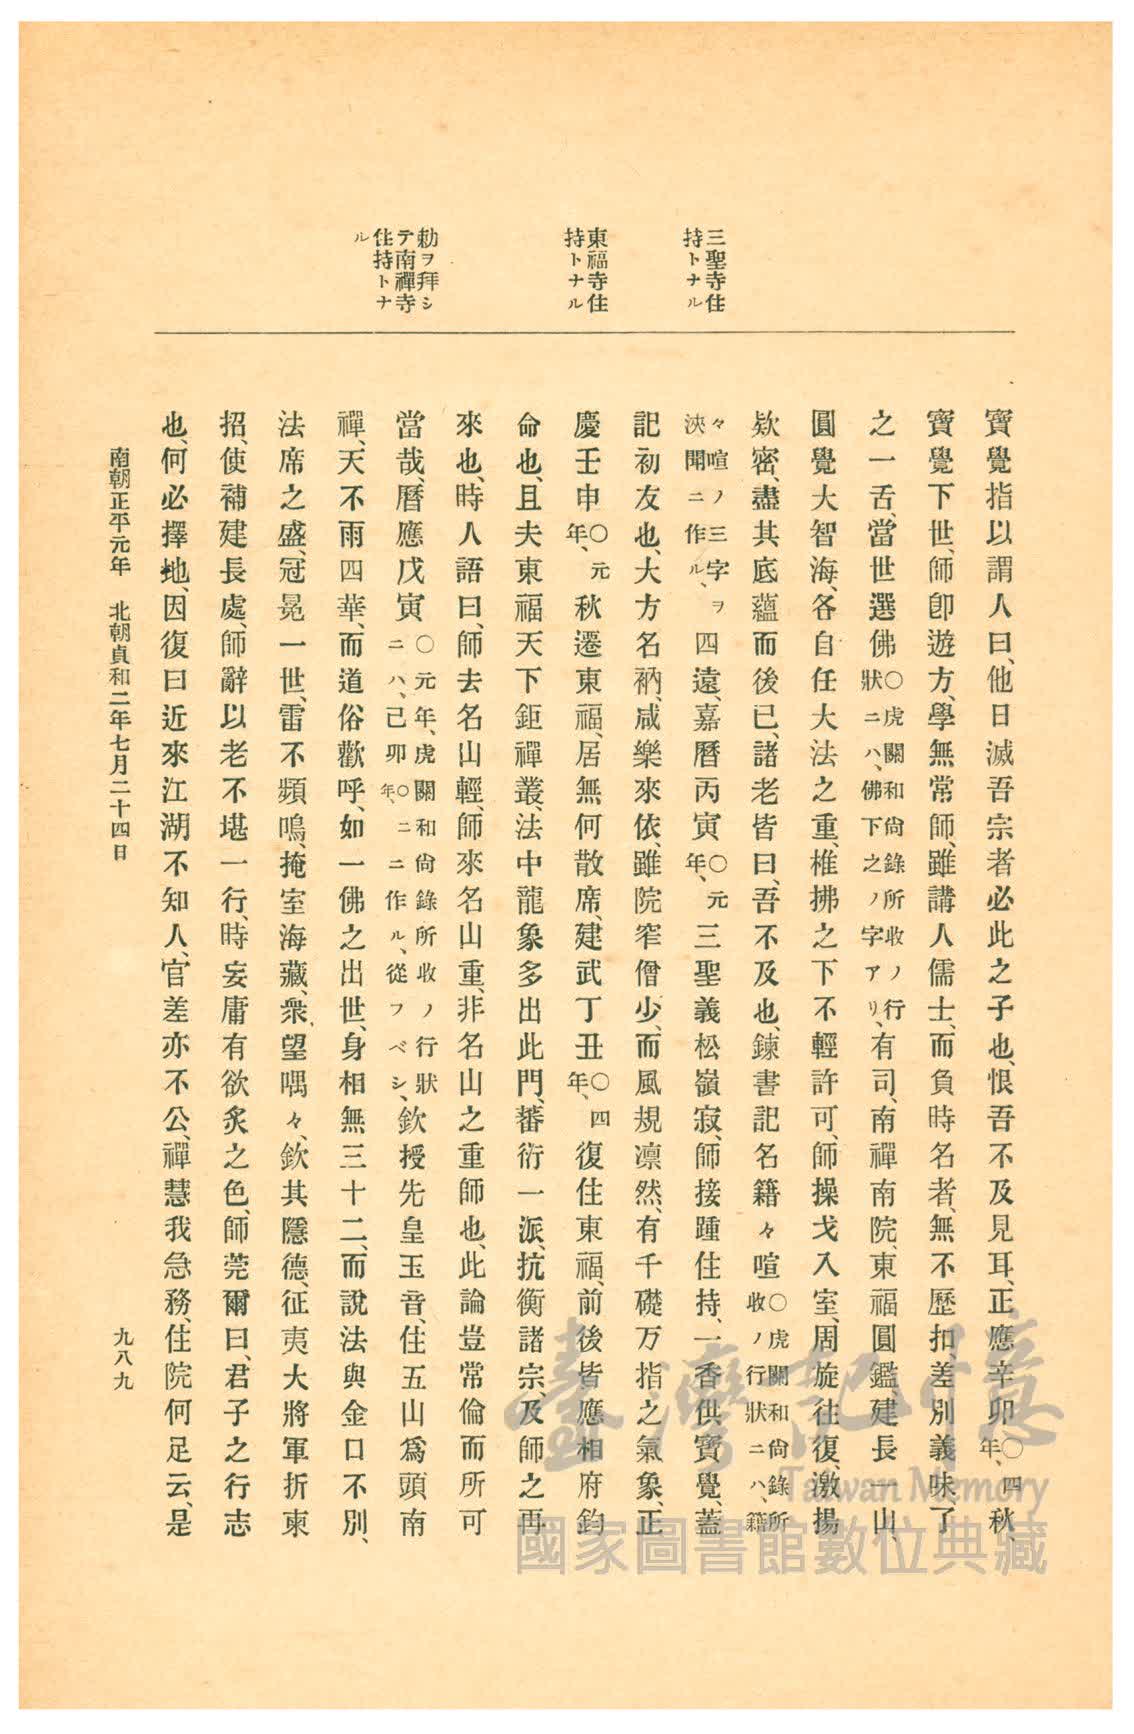 三聖寺住
持トナル
東福寺住
持トナル
勅ヲ拜シ
テ南禪寺
住持トナ
ル
寶覺指以謂人曰、他日滅吾宗者必此之子也、恨吾不及見耳、正應辛卯〇四年、秋、
寶覺下世、師卽遊方、學無常師、雖講人儒士、而負時名者、無不歷扣、差別義味、了
之一舌、當世選佛〇虎關和尙錄所收ノ行狀ニハ、佛下之ノ字アリ、有司、南禪南院、東福圓鑑、建長一山、
圓覺大智海、各自任大法之重、椎拂之下不輕許可、師操戈入室、周旋往復、激揚
欵密、盡其底蘊而後已、諸老皆曰、吾不及也、鍊書記名籍々喧〇虎關和尙錄所收ノ行狀ニハ、籍
々喧ノ三字ヲ浹聞ニ作ル、四遠、嘉曆丙寅〇元年、三聖義松嶺寂、師接踵住持、一香供寶覺、蓋
記初友也、大方名衲、咸樂來依、雖院窄僧少、而風規凛然、有千礎万指之氣象、正
慶壬申〇元年、秋遷東福、居無何散席、建武丁丑〇四年、復住東福、前後皆應相府鈞
命也、且夫東福天下鉅禪叢、法中龍象多出此門、蕃衍一派、抗衡諸宗、及師之再
來也、時人語曰、師去名山輕、師來名山重、非名山之重師也、此論豈常倫而所可
當哉、曆應戊寅〇元年、虎關和尙錄所收ノ行狀ニハ、己卯〇二年、ニ作ル、從フベシ、欽授先皇玉音、住五山爲頭、南
禪、天不雨四華、而道俗歡呼、如一佛之出世、身相無三十二、而說法與金口不別、
法席之盛、冠冕一世、雷不頻鳴、掩室海藏、衆望喁々、欽其隱德、征夷大將軍折柬
招、使補建長處、師辭以老不堪一行、時妄庸有欲炙之色、師莞爾曰、君子之行志
也、何必擇地、因復曰近來江湖不知人、官差亦不公、禪慧我急務、住院何足云、是
南朝正平元年　北朝貞和二年七月二十四日
九八九
臺灣記憶
Taiwan Memory
國家圖書館數位典藏